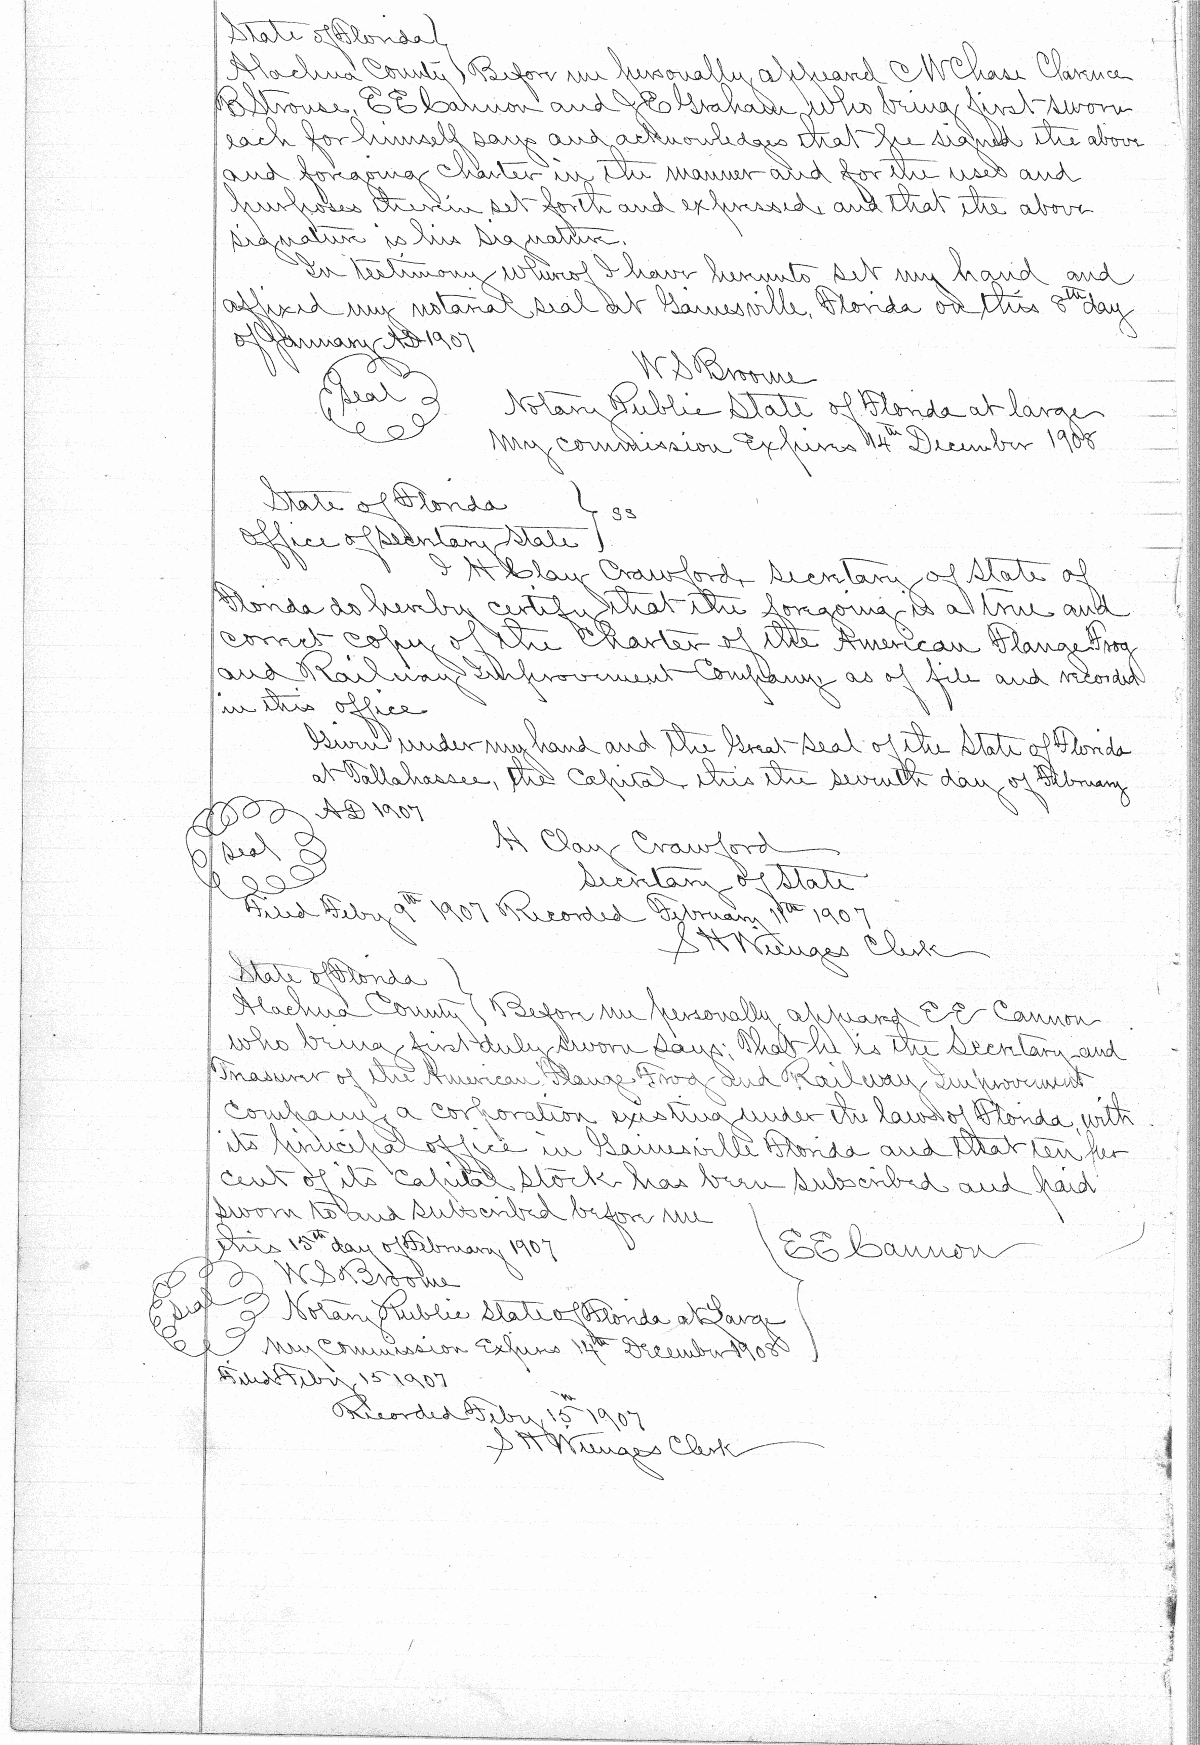 State of Florida
Alachua County Before me personally appeared C W Chase Clarence
B Strouse, E E Cannon and J E Graham, who being first sworn
each for himself says and acknowledges that he signed the above
and foregoing charter in the manner and for the uses and
purposes therein set forth and expressed, and that the above
signature is his signature.
In testimony whereof I have hereunto set my hand and
affixed my notarial seal at Gainesville, Florida on this 8th day
of January AD 1907
W S Broome
Seal
Notary Public State of Florida at large
My commission Expires 14th December 1908
State of Florida
ss
Office of Secretary State
I H Clay Crawford, Secretary of State of
Florida do hereby certify that the foregoing is a true and
correct copy of the Charter of the American Flange Frog
and Railway Improvement Company, as of file and recorded
in this office
Given under my hand and the Great Seal of the State of Florida
at Tallahassee, the Capital, this the seventh day of February
AD 1907
Seal
H Clay Crawford
Secretary of State
Filed Feby 9th 1907 Recorded February 11th 1907
S H Wienges Clerk
State of Florida
Alachua County Before me personally appeared E E Cannon
who being first duly sworn says; That he is the Secretary and
Treasurer of the American Flange Frog and Railway Improvement
Company, a corporation existing under the laws of Florida, with
its principal office in Gainesville Florida and that ten per
cent of its Capital Stock has been subscribed and paid
Sworn to and subscribed before me
this 15th day of February 1907
E E Cannon
W S Broome
Seal
Notary Public State of Florida at Large
My Commission Expires 14th December 1908
Filed Feby 15 1907
Recorded Feby 15th 1907
S H Wienges Clerk